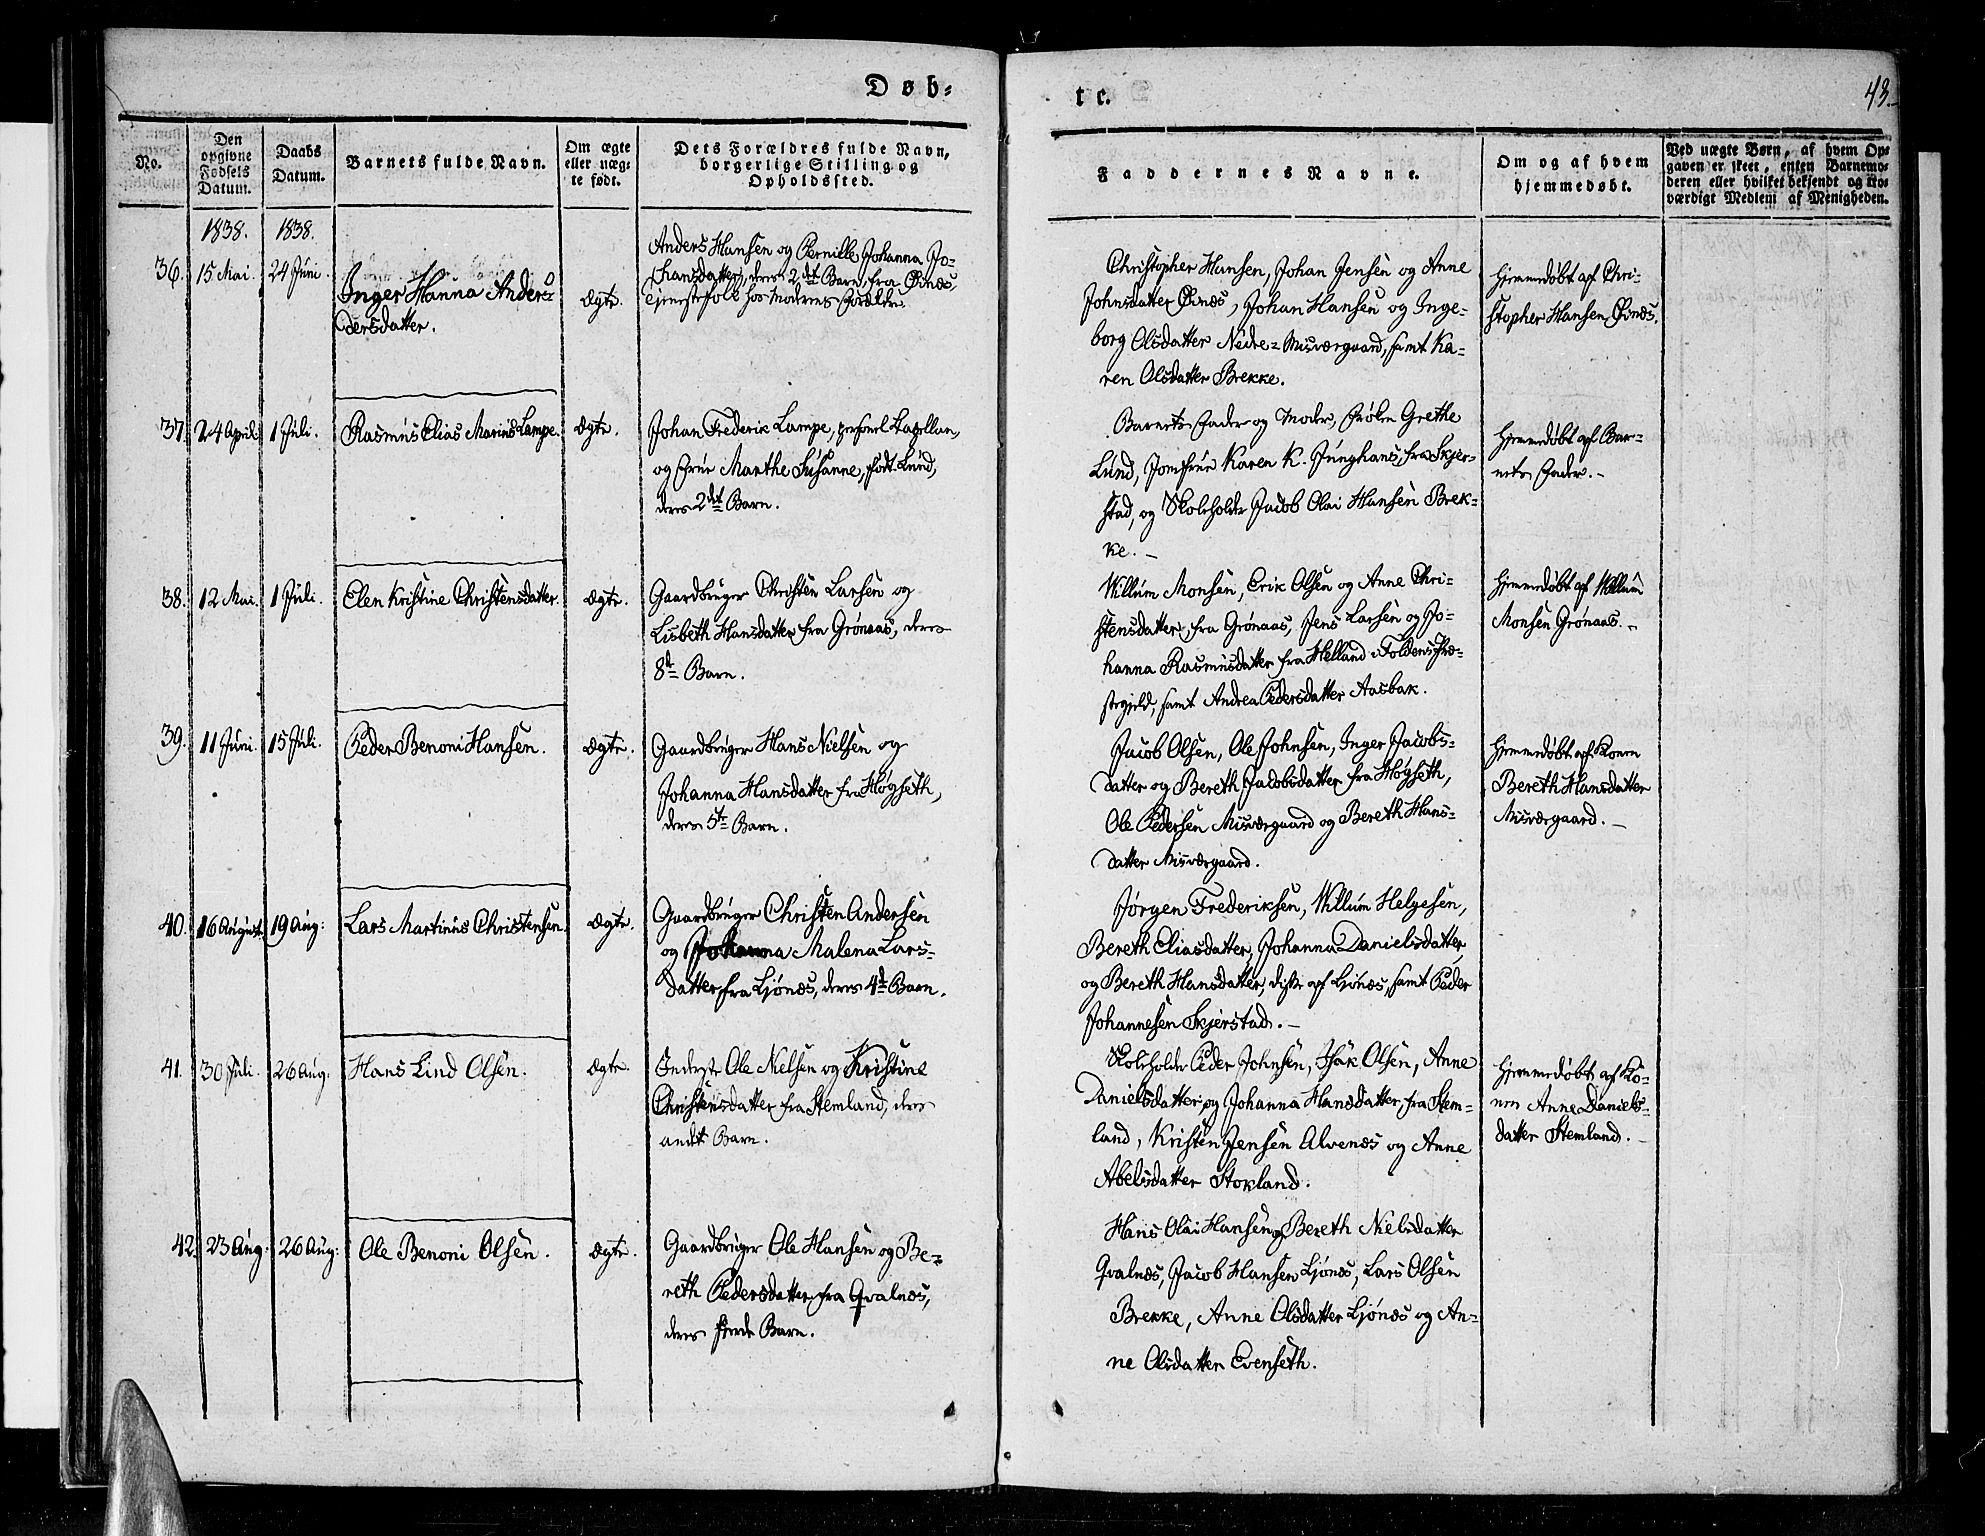 Døb=
te.
43.
No.
Den
opgivne
Fødsels
Datum.
Daabs
Datum.
Barnets fulde Navn.
Om ægte
eller uæg=
te født.
Dets Forældres fulde Navn,
borgerlige Stilling og
Opholdssted.
Faddernes Navne.
Om og af hvem
hjemmedøbt.
Ved uægte Børn, af hvem Op=
gaven er skeet, enten Barnemo=
deren eller hvilket bekjendt og tro=
værdigt Medlem af Menigheden.
1838. 1838.
36. 15 Mai. 24 Juni.
Inger Hanna Anders=
dersdatter.
Ægte.
Anders Hansen og Pernille Johanna Jo=
hansdatter, deres 2det Barn, fra Øinæs,
Tjenestefolk hos Moderens Forældre.
Christopher Hansen, Johan Jensen og Anne
Johnsdatter Øinæs, Johan Hansen og Inge=
borg Olsdatter Nedre=Misværgaard, samt Ka=
ren Olsdatter Brekke.
Hjemmedøbt af Chri=
stopher Hansen Øinæs.
37. 24 April. 1 Juli.
Rasmus Elias Marius Lampe.
Ægte.
Johan Frederik Lampe, personel Capellan,
og Frue Marthe Susanne, født Lund,
deres 2det Barn.
Barnets Fader og Moder, Frøken Grethe
Lund, Jomfrue Karen K. Junghans, fra Skjer=
stad, og Skoleholder Jacob Olai Hansen Brek=
ke. –
Hjemmedøbt af Bar=
nets Fader. –
38. 12 Mai. 1 Juli.
Elen Kristine Christensdatter.
Ægte.
Gaardbruger Christen Larsen og
Lisbeth Hansdatter fra Grønaas, deres
8de Barn.
Willum Monsen, Erik Olsen og Anne Chri=
stensdatter, fra Grønaas, Jens Larsen og Jo=
hanna Rasmusdatter fra Helland i Foldens Præ=
stegjeld, samt Andrea Pedersdatter Aasbak.
Hjemmedøbt af Willum
Monsen Grønaas. –
39. 11 Juni. 15 Juli.
Peder Benoni Hansen.
Ægte.
Gaardbruger Hans Nielsen og
Johanna Hansdatter fra Høgseth,
deres 5te Barn.
Jacob Olsen, Ole Johnsen, Inger Jacobs=
datter og Bereth Jacobsdatter fra Høgseth,
Ole Pedersen Misværgaard og Bereth Hans=
datter Misværgaard.
Hjemmedøbt af Konen
Bereth Hansdatter
Misværgaard. –
40. 16 August. 19 Aug:
Lars Martinus Christensen.
Ægte.
Gaardbruger Christen Andersen
og Johanna Malena Lars=
datter fra Ljønæs, deres 4de Barn.
Jørgen Frederiksen, Willum Helgesen,
Bereth Eliasdatter, Johanna Danielsdatter,
og Bereth Hansdatter, disse af Ljønæs, samt Peder
Johannesen Skjerstad. –
41. 30 Juli. 26 Aug.
Hans Lind Olsen.
Ægte.
Inderste Ole Nielsen og Kristine
Christensdatter fra Stemland, deres
andet Barn.
Skoleholder Peder Johnsen, Isak Olsen, Anne
Danielsdatter og Johanna Hansdatter, fra Stem=
land, Kristen Jensen Alvenæs og Anne
Abelsdatter Stokland.
Hjemmedøbt af Ko=
nen Anne Daniels=
datter Stemland. –
42. 23 Aug. 26 Aug:
Ole Benoni Olsen.
Ægte.
Gaardbruger Ole Hansen og Be=
reth Pedersdatter fra Qvalnæs,
deres fierde Barn.
Hans Olai Hansen og Bereth Nielsdatter
Qvalnæs, Jacob Hansen Ljønæs, Lars Olsen
Brekke, Anne Olsdatter Ljønæs og An=
ne Olsdatter Evenseth.